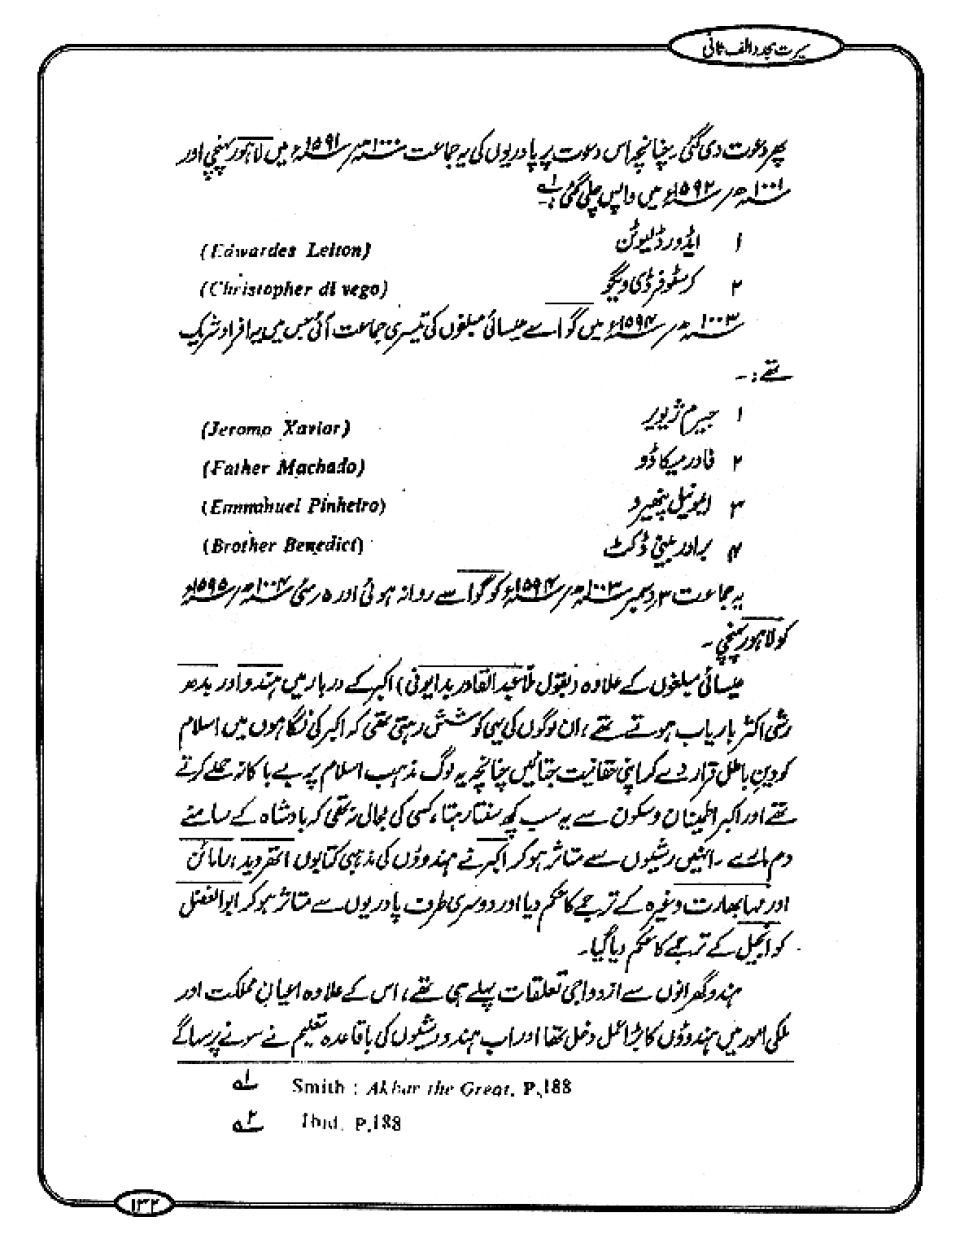 سیرت مجدد الف ثانی
پھر دعوت دی گئی چنانچہ اس دعوت پر پادریوں کی یہ جماعت ۱۰۰۰ھ/۱۵۹۱ء میں لاہور پہنچی اور
۱۰۰۱ھ/۱۵۹۲ء میں واپس چلی گئی :۔ ۱ے
۱ ایڈورڈ لیوٹن (Edwardes Leiton)
۲ کرسٹوفر ڈی ویگو (Christopher di vego)
۱۰۰۳ھ/۱۵۹۴ء میں گوا سے عیسائی مبلغوں کی تیسری جماعت آئی جس میں یہ افراد شریک
تھے :۔
۱ جیرم ژیویر (Jeromo Xavier)
۲ فادر میکاڈو (Father Machado)
۳ ایمونیل پنھیرو (Emmahuel Pinheiro)
۴ برادر بینی ڈکٹ (Brother Benedict)
یہ جماعت ۳ دسمبر ۱۰۰۳ھ/۱۵۹۴ء کو گوا سے روانہ ہوئی اور ۵ مئی ۱۰۰۴ھ/۱۵۹۵ء
کو لاہور پہنچی ۔
عیسائی مبلغوں کے علاوہ (بقول ملا عبدالقادر بدایونی) اکبر کے دربار میں ہندو اور بدھ
رشی اکثر باریاب ہوتے تھے، ان لوگوں کی یہی کوشش رہتی تھی کہ اکبر کی نگاہوں میں اسلام
کو دینِ باطل قرار دے کر اپنی حقانیت جتائیں چنانچہ یہ لوگ مذہب اسلام پر بے باکانہ حملے کرتے
تھے اور اکبر اطمینان و سکون سے یہ سب کچھ سنتا رہتا، کسی کی مجال نہ تھی کہ بادشاہ کے سامنے
دم مارے ۔ انہیں رشیوں سے متاثر ہو کر اکبر نے ہندوؤں کی مذہبی کتابوں اتھروید، رامائن
اور مہابھارت وغیرہ کے ترجمے کا حکم دیا اور دوسری طرف پادریوں سے متاثر ہو کر ابوالفضل
کو انجیل کے ترجمے کا حکم دیا گیا۔
ہندو گھرانوں سے ازدواجی تعلقات پہلے ہی تھے، اس کے علاوہ اعیانِ مملکت اور
ملکی امور میں ہندوؤں کا بڑا عمل دخل تھا اور اب ہندو رشیوں کی باقاعدہ تعلیم نے سونے پر سہاگے
۱ے Smith : Akbar the Great, P.188
۲ے Ibid. P.188
۱۳۲